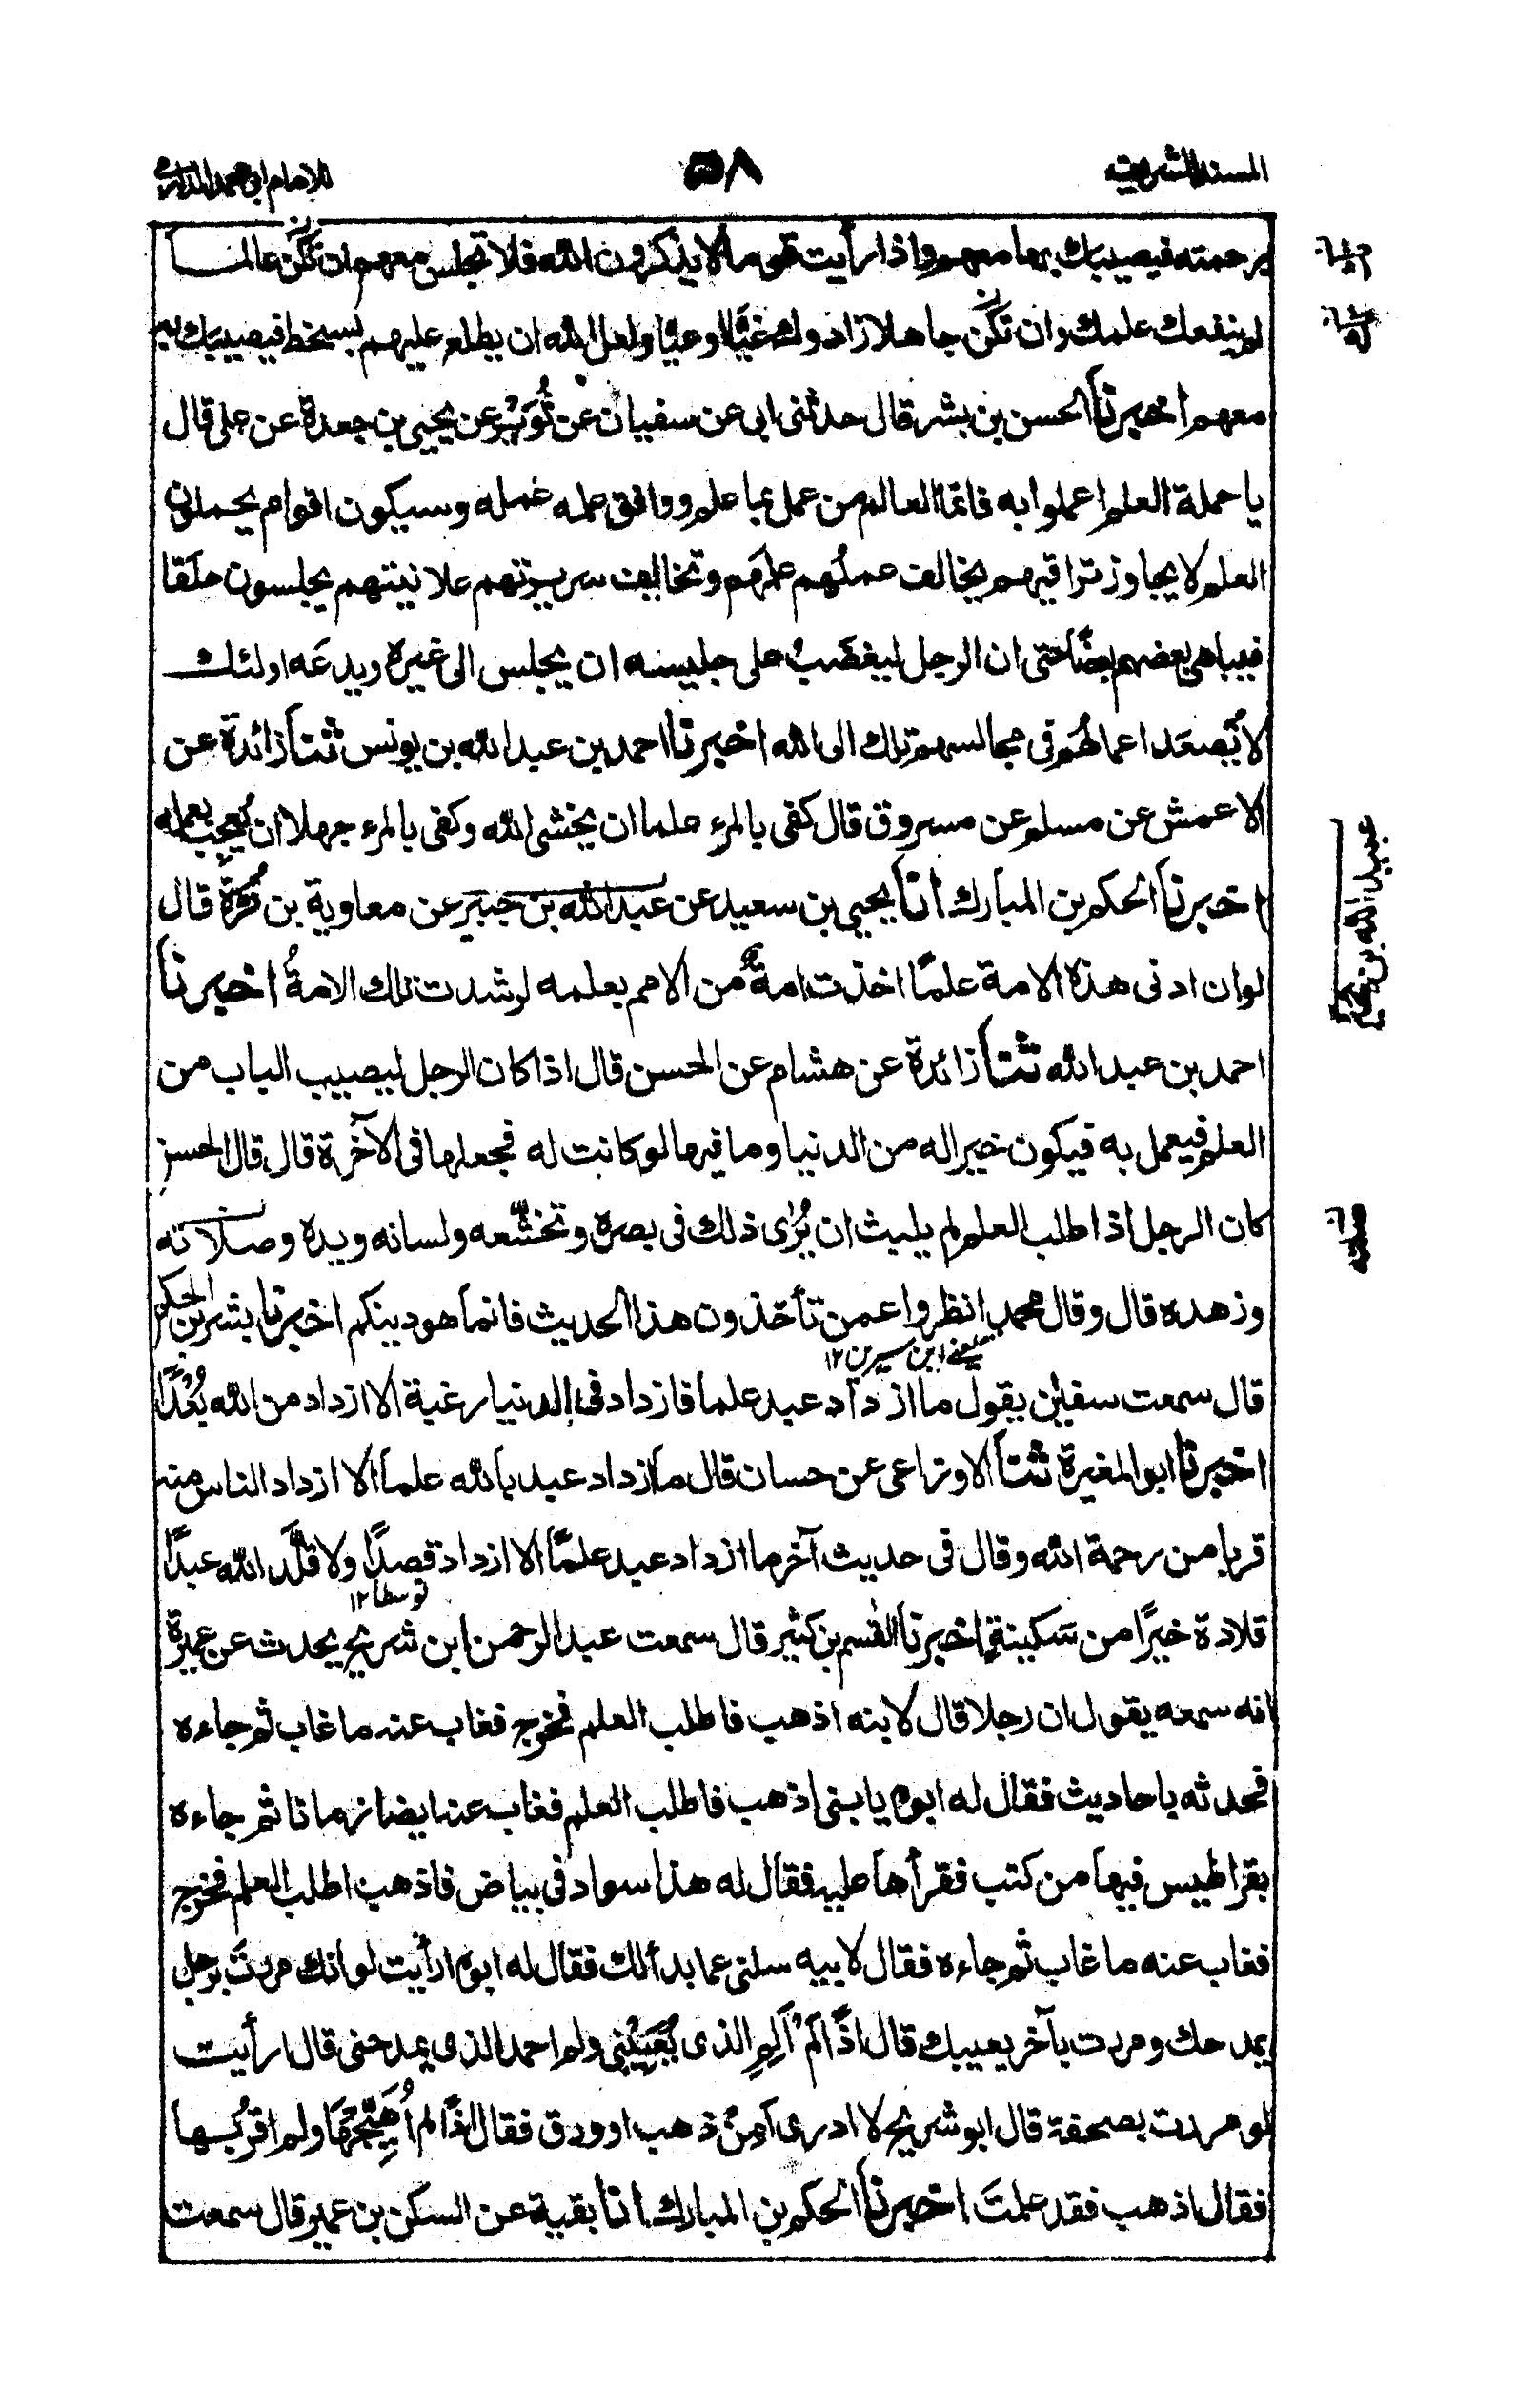 المسند الشريف
٥٨
للامام ابى محمد الدارمى
برحمته فيصيبك بها معهم واذا رأيت قوما لا يذكرون الله فلا تجلس معهم ان تكن عالما
لم ينفعك علمك وان تكن جاهلا زادوك غيّا او عيّا ولعل الله ان يطلع عليهم بسخط فيصيبك به
معهم اخبرنا الحسن بن بشر قال حدثنى ابى عن سفيان عن ثُوَيْر عن يحيى بن جعدة عن على قال
يا حملة العلم اعملوا به فانما العالم من عمل بما علم ووافق علمه عمله وسيكون اقوام يحملون
العلم لا يجاوز تراقيهم يخالف عملُهم علمَهم وتخالف سريرتهم علانيتهم يجلسون حلَقا
فيباهى بعضهم بعضًا حتى ان الرجل ليغضَبُ على جليسه ان يجلس الى غيره ويدعَه اولئك
لا تَصعَد اعمالهُم فى مجالسهم تلك الى الله اخبرنا احمد بن عبد الله بن يونس ثنا زائدة عن
الاعمش عن مسلم عن مسروق قال كفى بالمرء علما ان يخشى الله وكفى بالمرء جهلا ان يُعجَب بعمله
اخبرنا الحكم بن المبارك انا يحيى بن سعيد عن عبد الله بن جبير عن معاوية بن قُرَّة قال
عبيد الله بن
لو ان ادنى هذه الامة علمًا اخذت امةٌ من الامم بعلمه لرشدت تلك الامةُ اخبرنا
احمد بن عبد الله ثنا زائدة عن هشام عن الحسن قال اذا كان الرجل ليصيب الباب من
العلم فيعمل به فيكون خيرا له من الدنيا وما فيها لو كانت له فجعلها فى الآخرة قال قال الحسن
كان الرجل اذا طلب العلم لم يلبث ان يُرٰى ذلك فى بصره وتخشّعه ولسانه ويده وصلاته
وزهده قال وقال محمد انظروا عمن تأخذون هذا الحديث فانما هو دينكم اخبرنا بشر بن الحكم
يعنے ابن سيرين ١٢
قال سمعت سفيٰن يقول ما ازداد عبد علما فازداد فى الدنيا رغبة الا ازداد من الله بُعْدًا
اخبرنا ابو المغيرة ثنا الاوزاعى عن حسان قال ما ازداد عبد بالله علما الا ازداد الناس منه
قربا من رحمة الله وقال فى حديث آخر ما ازداد عبد علمًا الا ازداد قصدًا ولا قلَّد الله عبدًا
توسطا ١٢
قلادة خيرًا من سَكينة اخبرنا القٰسم بن كثير قال سمعت عبد الرحمن ابن شريح يحدث عن عميرة
انه سمعه يقول ان رجلا قال لابنه اذهب فاطلب العلم فخرج فغاب عنه ما غاب ثم جاءه
فحدثه باحاديث فقال له ابوه يا بنى اذهب فاطلب العلم فغاب عنه ايضا زمانا ثم جاءه
بقراطيس فيها من كتب فقرأها عليه فقال له هذا سواد فى بياض فاذهب اطلب العلم فخرج
فغاب عنه ما غاب ثم جاءه فقال لابيه سلنى عما بدألك فقال له ابوه ارأيت لو انك مررتَ برجل
يمدحك ومررت بآخر يعيبك قال اذًا لَمْ اَلُمِ الذى يَعِيْبُنِى ولم احمد الذى يمدحنى قال ارأيت
لو مررت بصحفة قال ابو شريح لا ادرى اَمِنْ ذهب او ورق فقال اذًا لم اُهَيِّجْهَا ولم اقرَبْها
فقال اذهب فقد علمتَ اخبرنا الحكم بن المبارك انا بقية عن السكن بن عمير قال سمعت